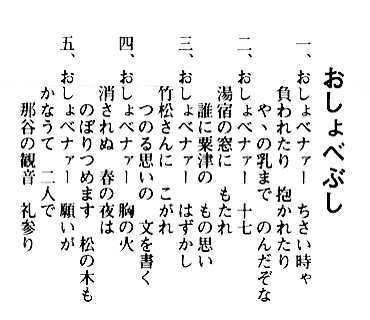 おしょべぶし
一、おしょべナァー ちさい時ゃ
負われたり 抱かれたり
やゝの乳まで のんだぞな
二、おしょべナァー 十七
湯宿の窓に もたれ
誰に粟津の もの思い
三、おしょべナァー はずかし
竹松さんに こがれ
つのる思いの 文を書く
四、おしょべナァー 胸の火
消されぬ 春の夜は
のぼりつめます 松の木も
五、おしょべナァー 願いが
かなうて 二人で
那谷の観音 礼参り